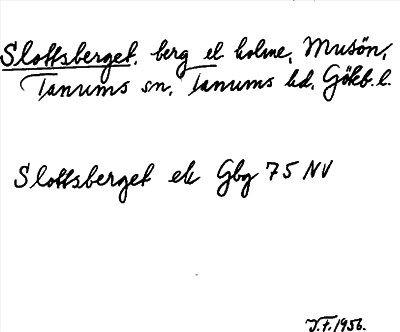 Slottsberget, berg el. holme, Musön,
Tanums sn, Tanums hd, Götb. l.
Slottsberget ek Gbg 75 NV
J.F. 1956.